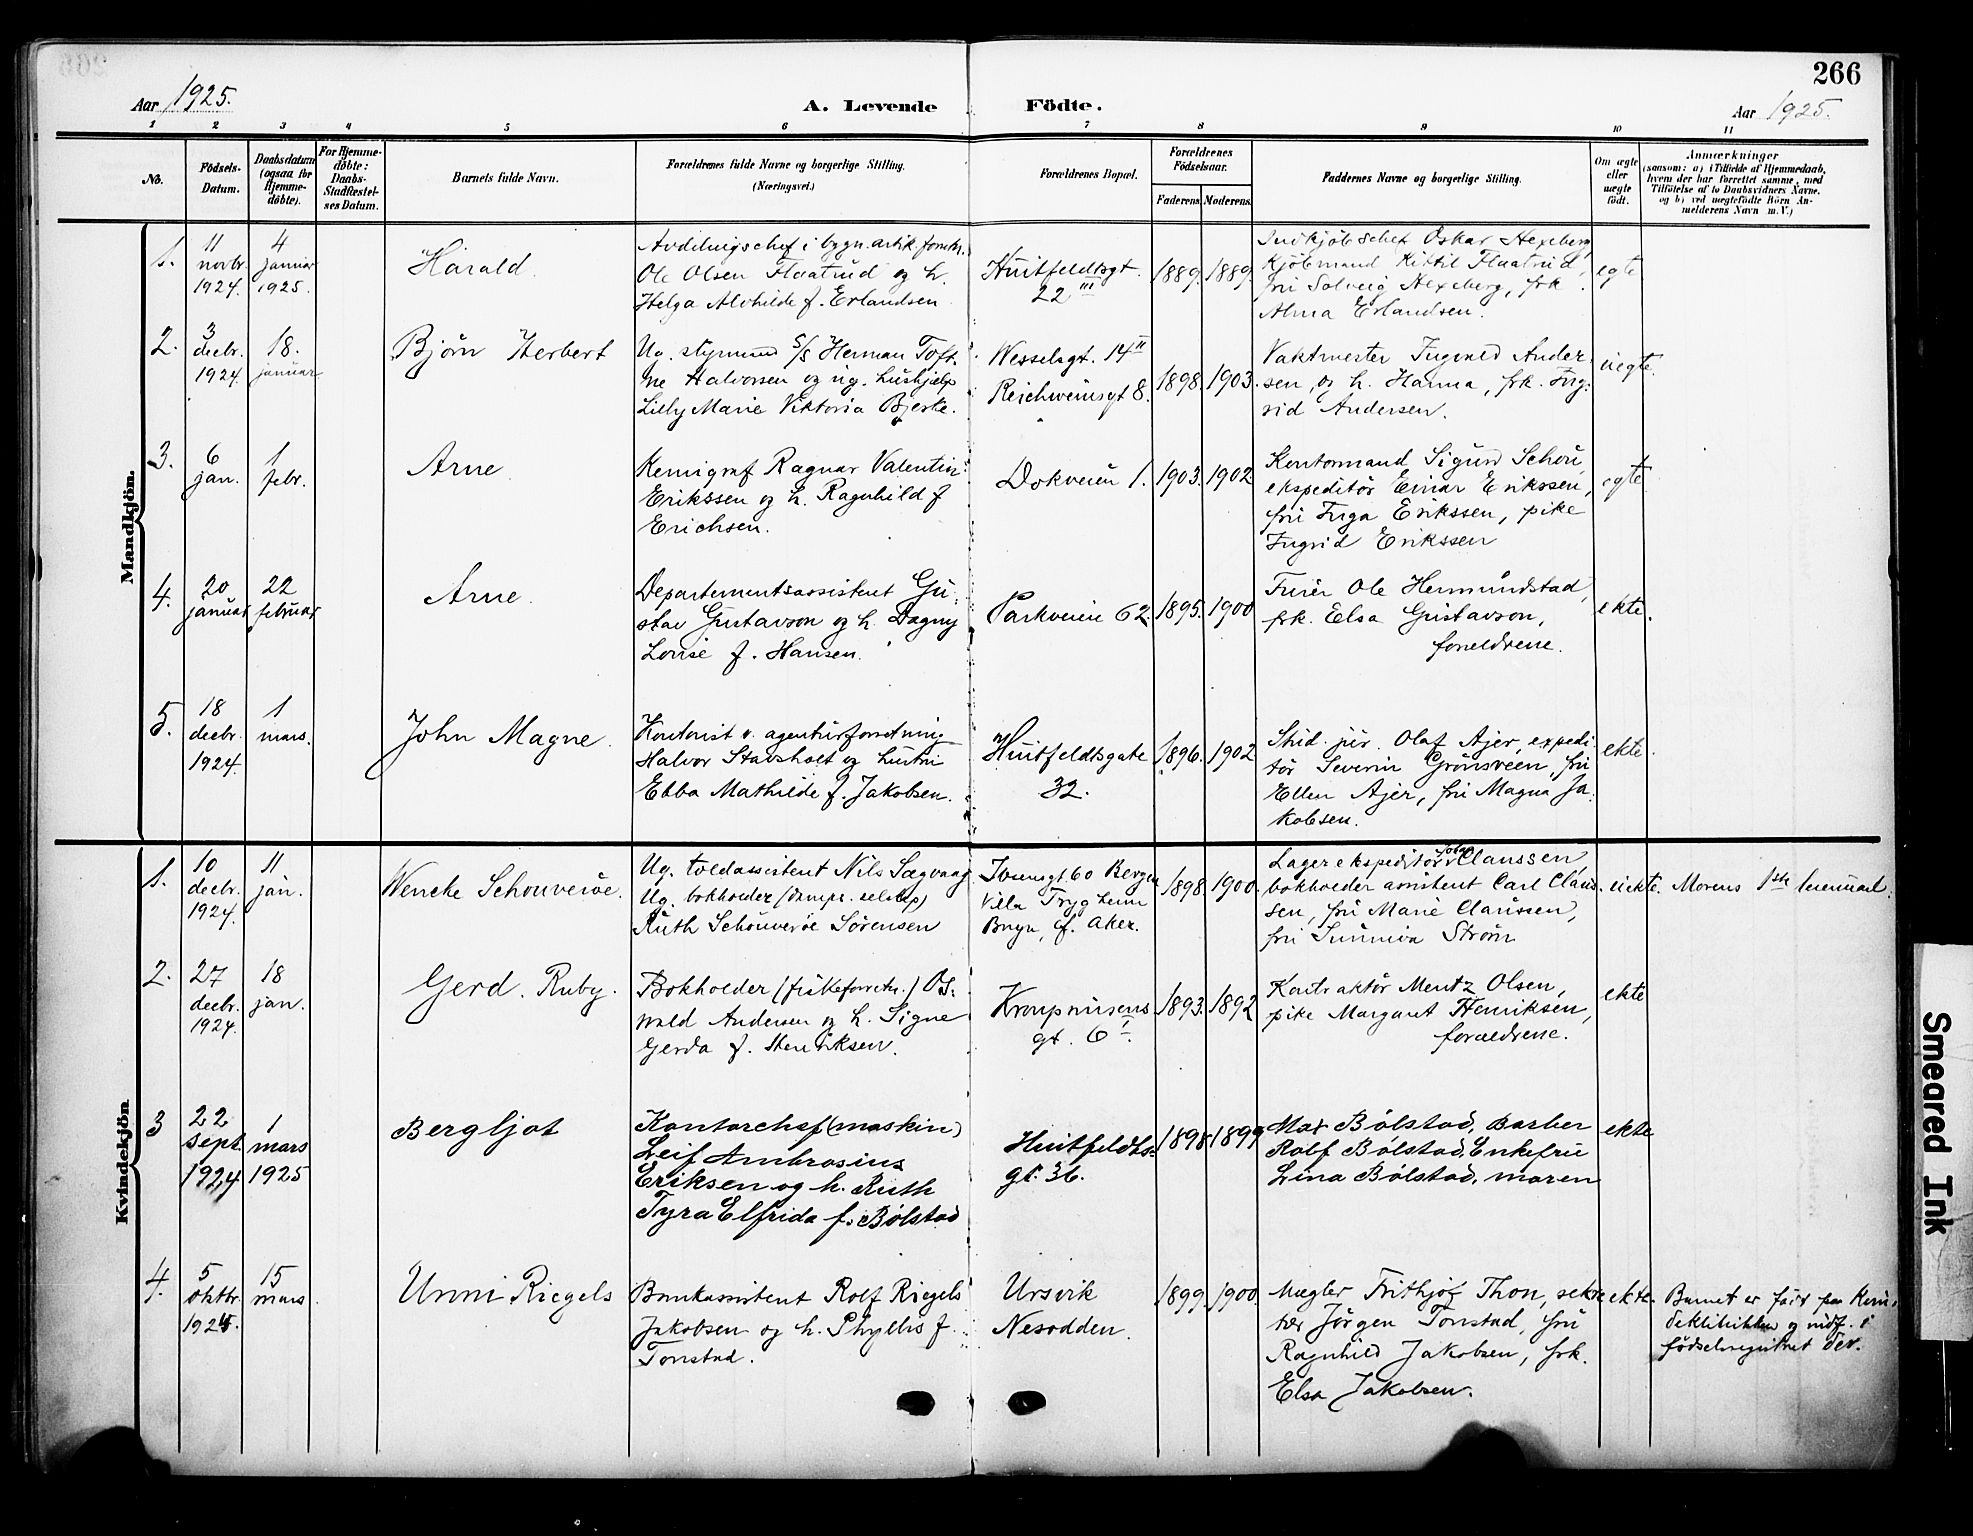 266
Aar 1925.
A. Levende Födte.
Aar 1925.
1 2 3 4 5 6 7 8 9 10 11
No.
Födsels-
Datum.
Daabsdatum
(ogsaa for
Hjemme-
döbte).
For Hjemme-
döbte:
Daabs-
Stadfæstel-
ses Datum.
Barnets fulde Navn.
Forældrenes fulde Navne og borgerlige Stilling.
(Næringsvei.)
Forældrenes Bopæl.
Forældrenes
Födselsaar.
Faderens. Moderens.
Faddernes Navne og borgerlige Stilling.
Om ægte
eller
uægte
født.
Anmærkninger
(saasom: a) i Tilfælde af Hjemmedaab,
hvem der har forrettet samme, med
Tilföielse af to Daabsvidners Navne.
og b) ved uægtefödte Börn An-
melderens Navn m.V.)
Mandkjön.
1.
11
novbr.
1924.
4
januar
1925.
Harald.
Avdelingschef i bygn.artik.forretn.
Ole Olsen Flaatrud og h.
Helga Alvhilde f. Erlandsen
Huitfeldtsgt.
22 III
1889. 1889.
Indkjöbschef Oskar Hexeberg
Kjöbmand Kittil Flaatrud,
fru Solveig Hexeberg, frk.
Alma Erlandsen.
egte
2.
3
decbr.
1924.
18.
januar
Björn Herbert
Ug. styrmand S/S Herman Toft-
ne Halvorsen og ug. hushjælp
Lilly Marie Viktoria Bjerke.
Wesselsgt. 14 II
Reichweinsgt 8.
1898. 1903.
Vaktmester Ingvald Ander-
sen, og h. Hanna, frk. Ing-
rid Andersen.
uegte.
3.
6
jan.
1
febr.
Arne
Kemigraf Ragnar Valentin
Erikssen og h. Ragnhild f
Erichsen.
Dokveien 1.
1903. 1902
Kontormand Sigurd Schou,
ekspeditör Einar Erikssen,
fru Inga Erikssen, pike
Ingrid Erikssen
egte
4.
20
januar
22
februar
Arne.
Departementsassistent Gu-
stav Gustavson og h. Dagny
Louise f. Hansen.
Parkveien 62.
1895. 1900
Furér Ole Hermundstad,
frk. Elsa Gustavson,
foreldrene.
ekte.
5.
18
decbr.
1924.
1
mars.
John Magne.
Kontorist v. agenturforretning
Halvor Stavsholt og hustru
Ebba Mathilde f. Jakobsen.
Huitfeldtsgate
32.
1896. 1902
Stud. jur. Olaf Ajer, expedi-
tör Severin Grönsveen, fru
Ellen Ajer, fru Magna Ja-
kobsen.
ekte.
Kvindekjön.
1.
10
decbr.
1924.
11
jan.
Wencke Schouveröe.
Ug. toldassistent Nils Sagvaag
Ug. bokholder (damps. selskap)
Ruth Schouveröe Sörensen
60 Bergen
Villa Trygheim
Bryn, Aker.
1898. 1900.
Lagerekspeditör Claussen
bokholder assistent Carl Claus-
sen, fru Marie Claussen,
fru Sunniva Ström
uekte.
Morens 1ste
2.
27
decbr.
1924.
18
jan.
Gerd. Ruby.
Bokholder (fiskeforretn.) Os-
wald Andersen og h. Signe
Gerda f. Henriksen.
Kronprinsens
gt. 6 I
1893. 1892
Kontraktör Mentz Olsen,
pike Margaret Henriksen,
forældrene.
ekte
3
22
sept.
1924
1
mars
1925
Bergljot
Kontorchef (maskin)
Leif Ambrosius
Eriksen og h. Ruth
Tyra Elfrida f. Bølstad
Huitfeldts-
gt. 36.
1898 1899
Max Bølstad, Barber
Rolf Bølstad, Enkefrue
Lina Bølstad, moren
ekte
4.
5
oktbr.
1924.
15
mars
Unni Riegels
Bankassistent Rolf Riegels
Jakobsen og h. Phyllis f.
Tonstad.
Ursvik
Nesodden.
1899. 1900.
Mægler Frithjof Thon, sekre-
tær Jörgen Tonstad, fru
Ragnhild Jakobsen, frk.
Elsa Jakobsen.
ekte.
Barnet er födt paa Kvin-
deklinikken og indf. i
födselsregistret der.
Smeared Ink